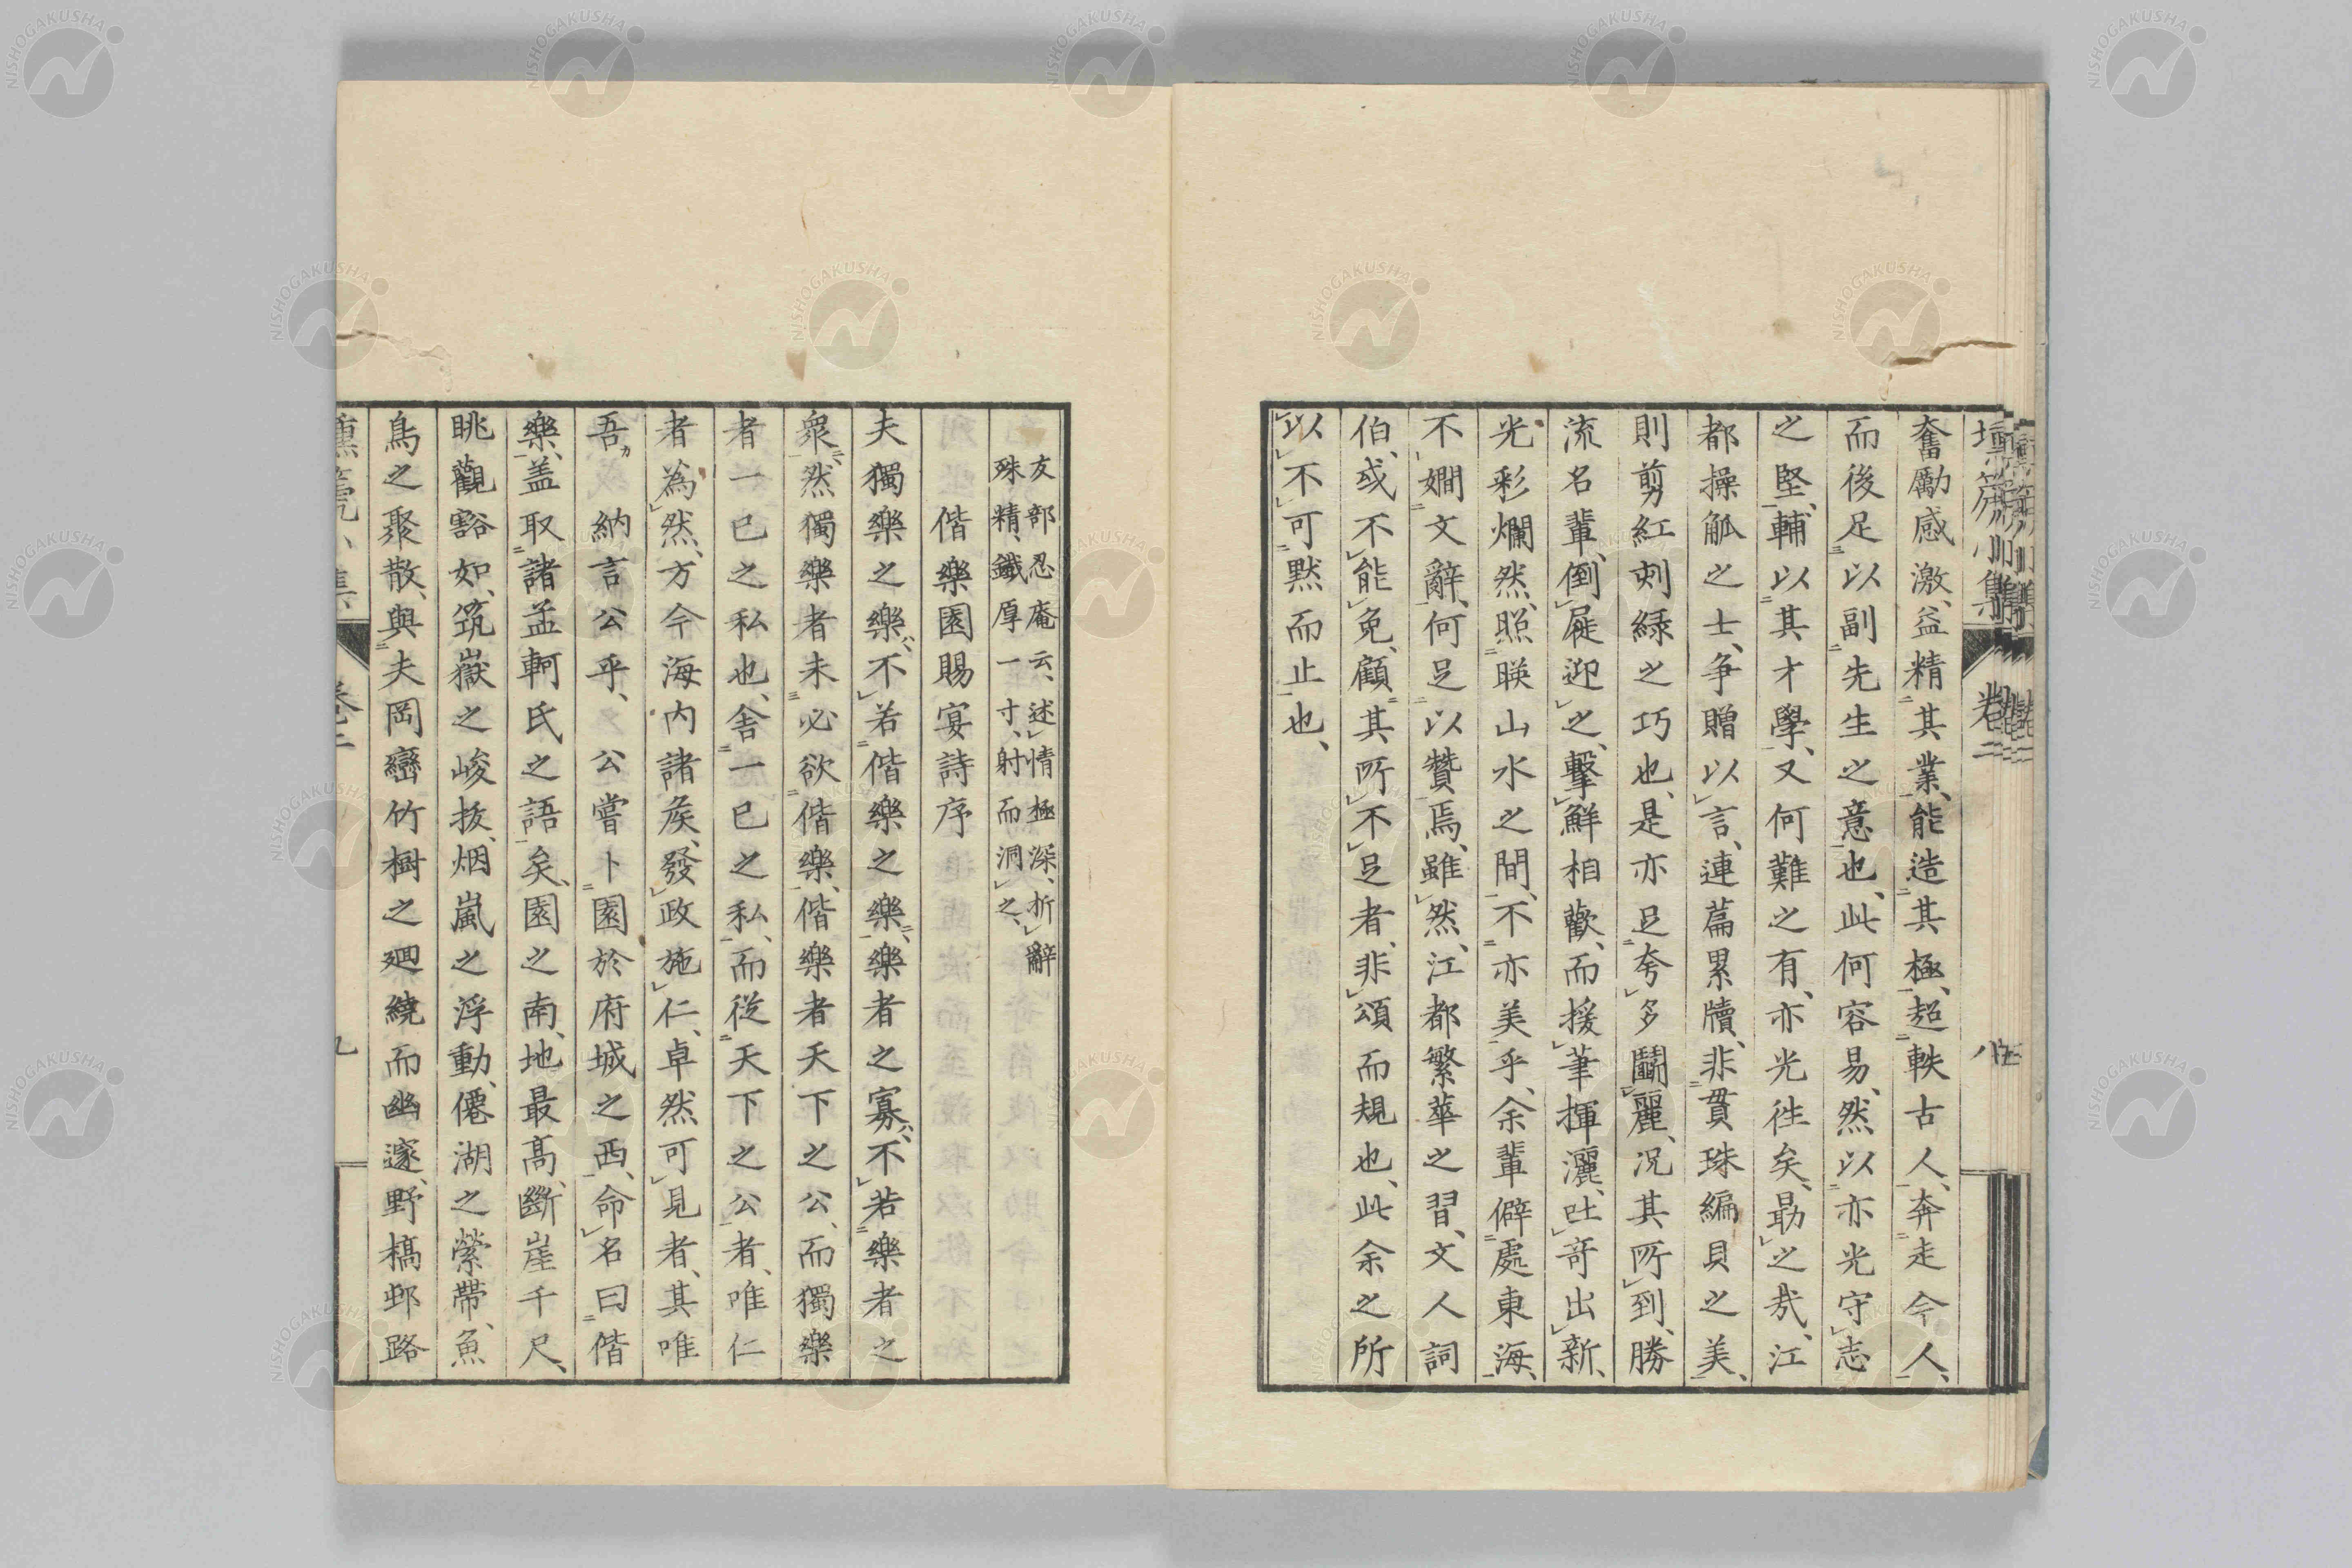 奮勵感激、益精其業、能造其極、超軼古人、奔走今人、
而後足以副先生之意也、此何容易、然以亦光守志
之堅、輔以其才學、又何難之有、亦光往矣、勗之哉、江
都操觚之士、争贈以言、連篇累牘、非貫珠編貝之美、
則剪紅刺緑之巧也、是亦足夸多鬪麗、况其所到、勝
流名輩、倒屣迎之、擊鮮相歡、而援筆揮灑、吐竒出新、
光彩爛然、照映山水之間、不亦美乎、余輩僻處東海、
不嫺文辭、何足以贊焉、雖然、江都繁華之習、文人詞
伯、或不能免、顧其所不足者、非頌而規也、此余之所
以不可默而止也、
友部忍庵云、述情極深、折辭
殊精、鐵厚一寸、射而洞之、
偕樂園賜宴詩序
夫獨樂之樂、不若偕樂之樂、樂者之寡、不若樂者之
衆、然獨樂者未必欲偕樂、偕樂者天下之公、而獨樂
者一己之私也、舍一己之私、而從天下之公者、唯仁
者為然、方今海内諸矦、發政施仁、卓然可見者、其唯
吾 納言公乎、公嘗卜園於府城之西、命名曰偕
樂、盖取諸孟軻氏之語矣、園之南、地最高、斷崖千尺、
眺觀豁如、筑嶽之峻拔、烟嵐之浮動、僊湖之縈帶、魚
鳥之聚散、與夫岡巒竹樹之廻繞而幽邃、野橋邨路